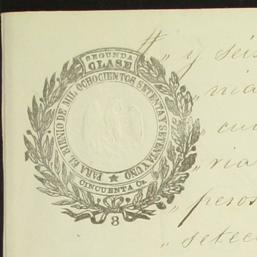 SEGUNDA
CLASE
PARA EL BIENIO DE MIL OCHOCIENTOS SETENTA Y SETENTA Y UNO
CINCUENTA Cs.
8
" y seis
" nia
" cu
" ria
" pesos
" setec